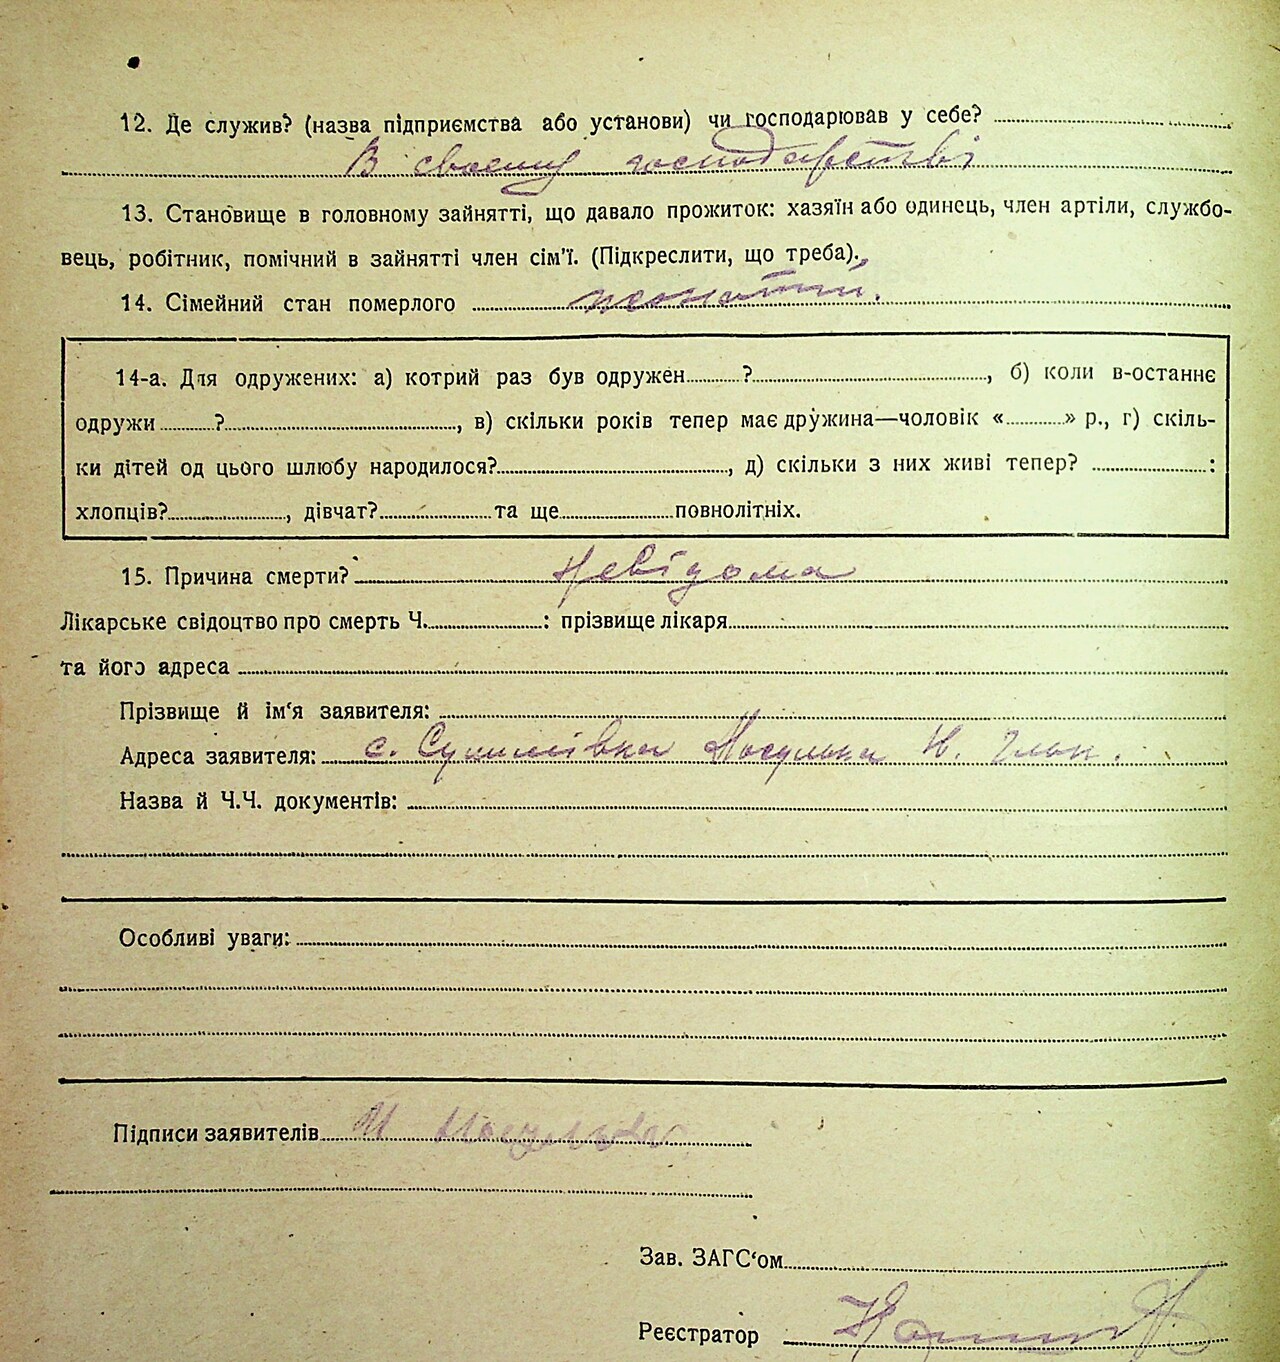 12. Де служив? (назва підприємства або установи) чи господарював у себе?
В своему господарстві
13. Становище в головному зайнятті, що давало прожиток: хазяїн або одинець, член артіли, службо-
вець, робітник, помічний в зайнятті член сім'ї. (Підкреслити, що треба).
14. Сімейний стан померлого
14-а. Для одружених: а) котрий раз був одружен ? , б) коли в-останнє
одружи ? , в) скільки років тепер має дружина—чоловік « » р., г) скіль-
ки дітей од цього шлюбу народилося? , д) скільки з них живі тепер? :
хлопців? , дівчат? та ще повнолітніх.
15. Причина смерти? Невідома
Лікарське свідоцтво про смерть Ч. : прізвище лікаря
та його адреса
Прізвище й ім‘я заявителя:
Адреса заявителя: с. Сулимівка Носулька
Назва й Ч.Ч. документів:
Особливі уваги:
Підписи заявителів Носулька
Зав. ЗАГС‘ом
Реєстратор